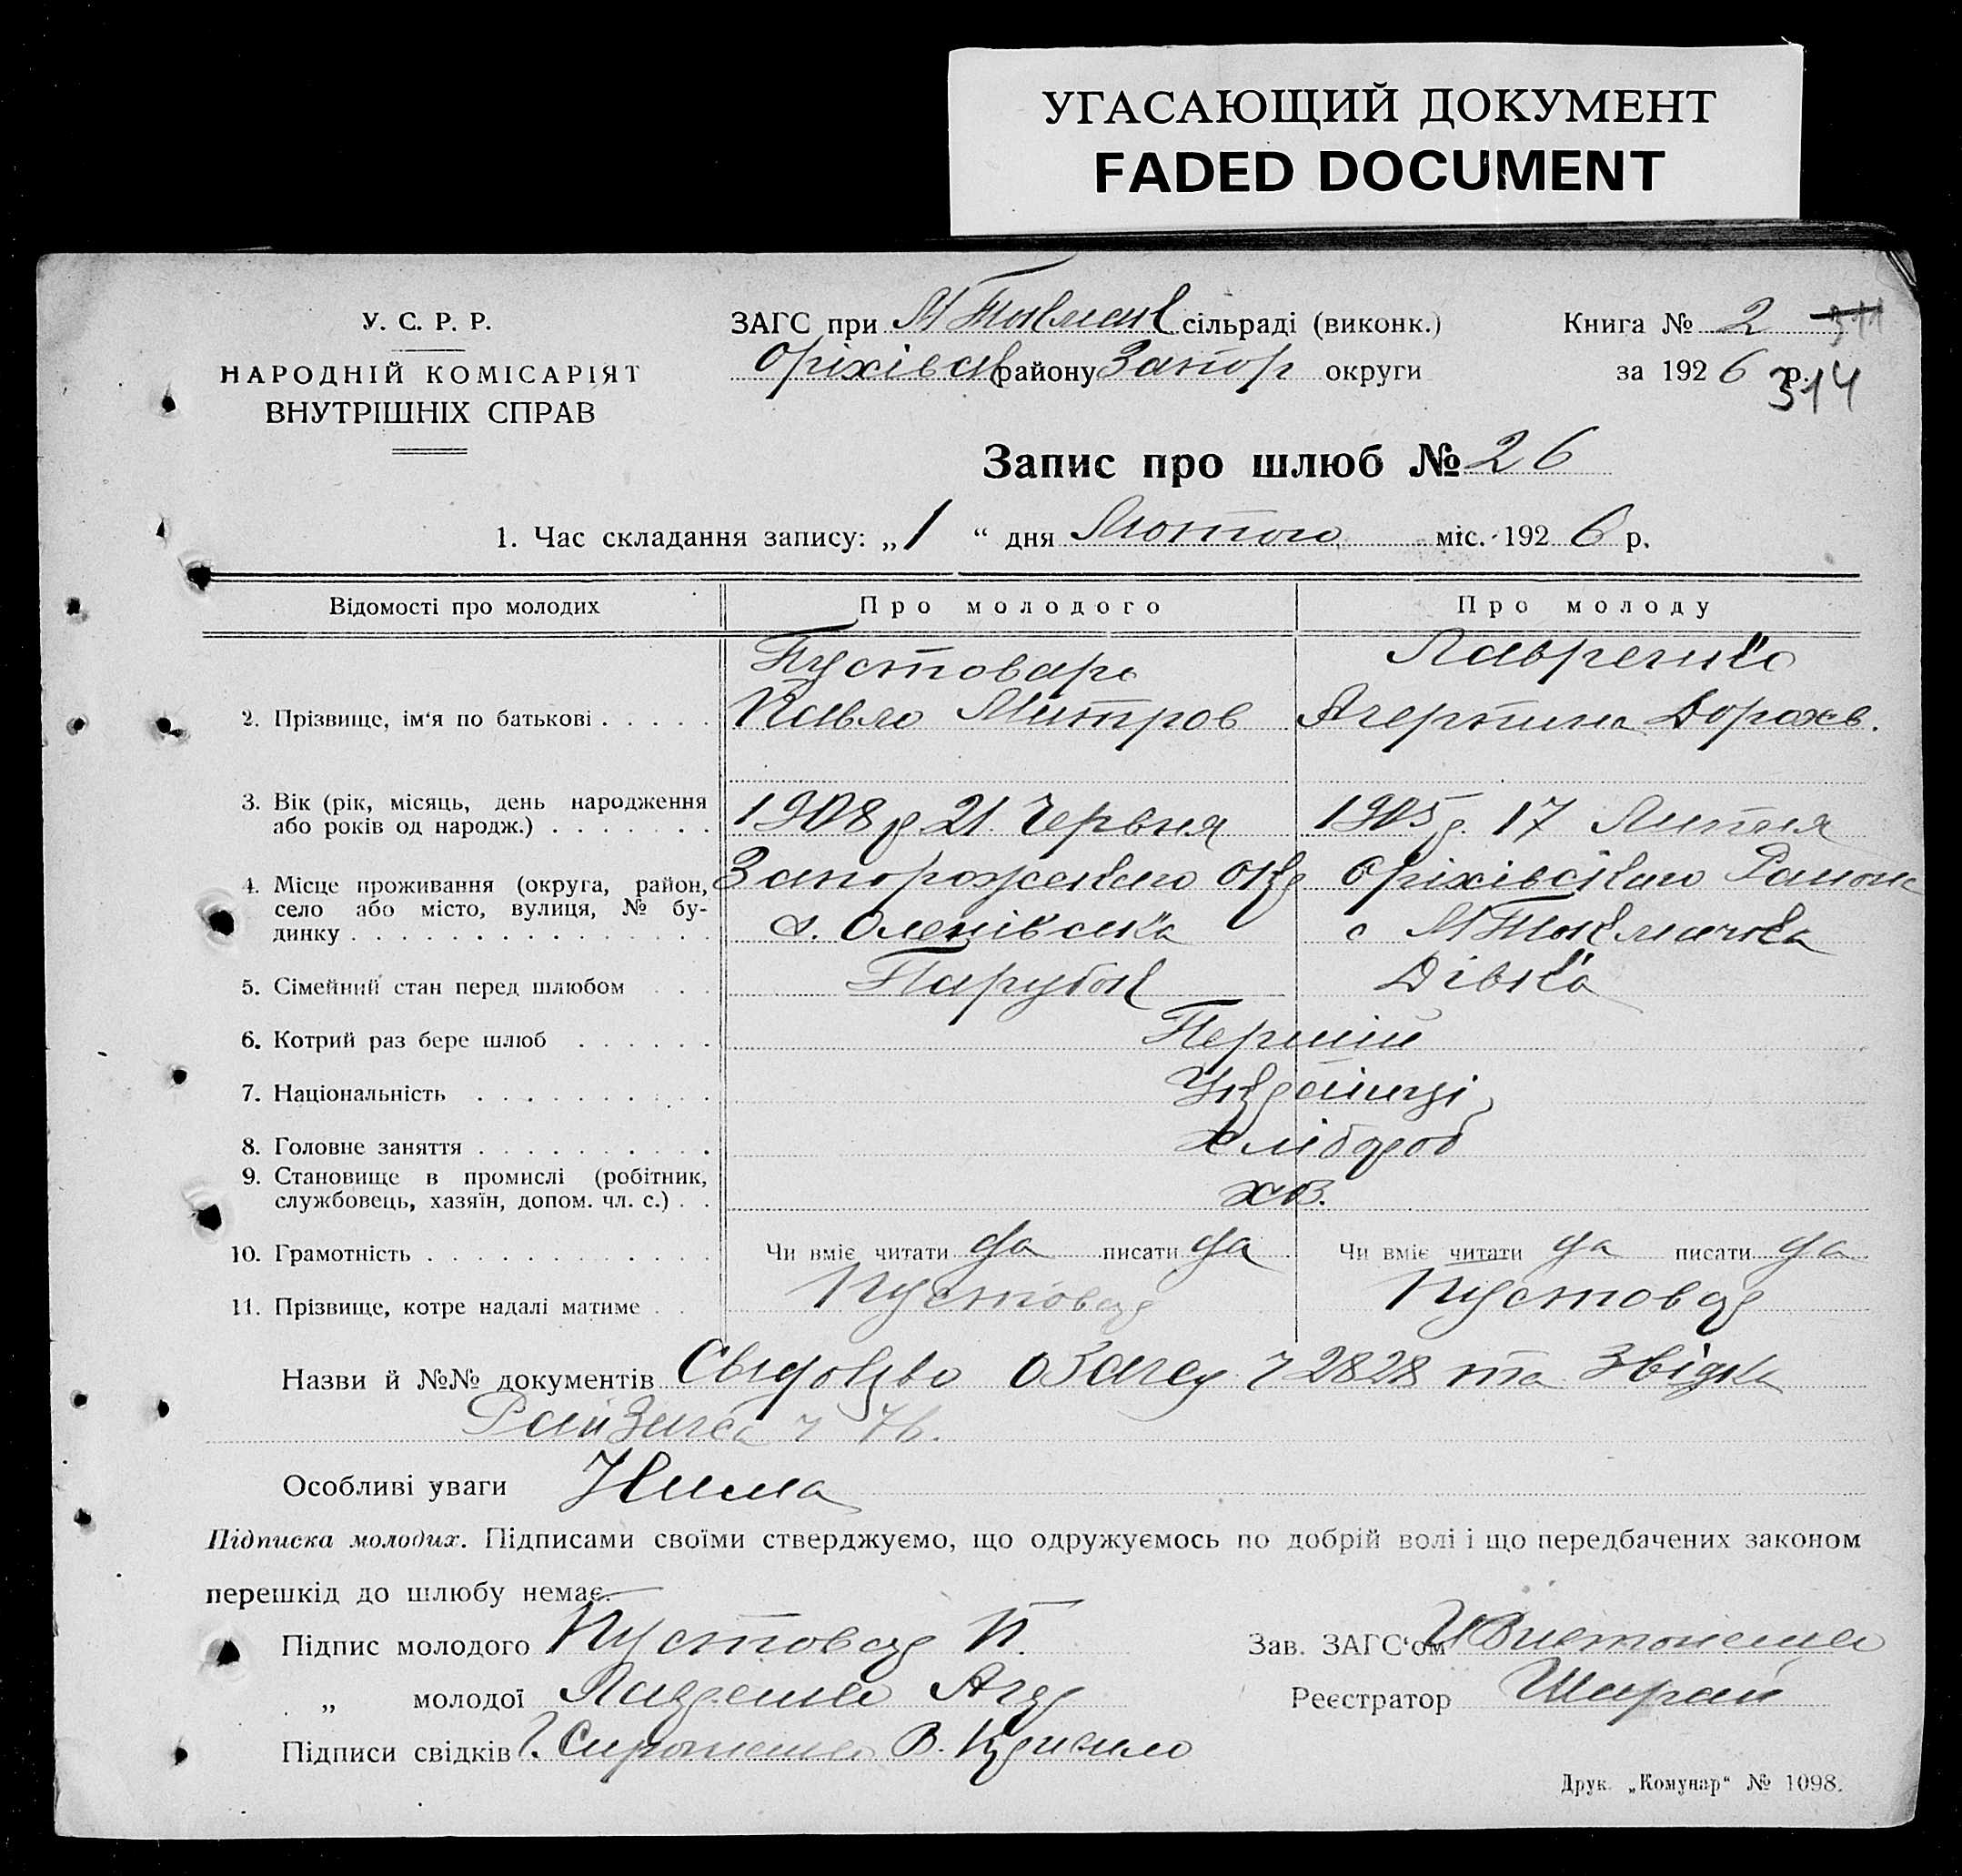 УГАСАЮЩИЙ ДОКУМЕНТ
FADED DOCUMENT
У. С. Р. Р.
НАРОДНІЙ КОМІСАРІЯТ
ВНУТРІШНІХ СПРАВ
ЗАГС при М Токмак сільраді (виконк.)
Оріхівск району Запор округи
Книга № 2 311
за 1926 р.
314
Запис про шлюб № 26
1. Час складання запису: „1“ дня Лютого міс. 1926 р.
Відомості про молодих Про молодого Про молоду
Пустоварь Лавренко
2. Прізвище, ім‘я по батькові . . . . . Павло Митров Дорохв.
3. Вік (рік, місяць, день народження
або років од народж.) . . . . . . . 1908 р 21. Червня 1905 р. 17 Липня
4. Місце проживання (округа, район,
село або місто, вулиця, № бу-
динку . . . . . . . . . . . . . . . .
Запорожского Окр Оріхівского Района
с. Оленівська с М Токмачка
5. Сімейний стан перед шлюбом . . . Парубок Дівка
6. Котрий раз бере шлюб . . . . . . Перший
7. Національність . . . . . . . . . . Українці
8. Головне заняття . . . . . . . . . . хлібороб
9. Становище в промислі (робітник,
службовець, хазяїн, допом. чл. с.) . . хоз.
10. Грамотність . . . . . . . . . . . . Чи вміє читати да писати да Чи вміє читати да писати да
11. Прізвище, котре надалі матиме . . Пустовар Пустовар
Назви й №№ документів 2828 та Звідка
Райзагса ч 76.
Особливі уваги Нима
Підписка молодих. Підписами своїми стверджуємо, що одружуємось по добрій волі і що передбачених законом
перешкід до шлюбу немає.
Підпис молодого Пустовар П. Зав. ЗАГС‘ом
„ молодої Лавренко Реєстратор Шарай
Підписи свідків
Друк. „Комунар“ № 1098.